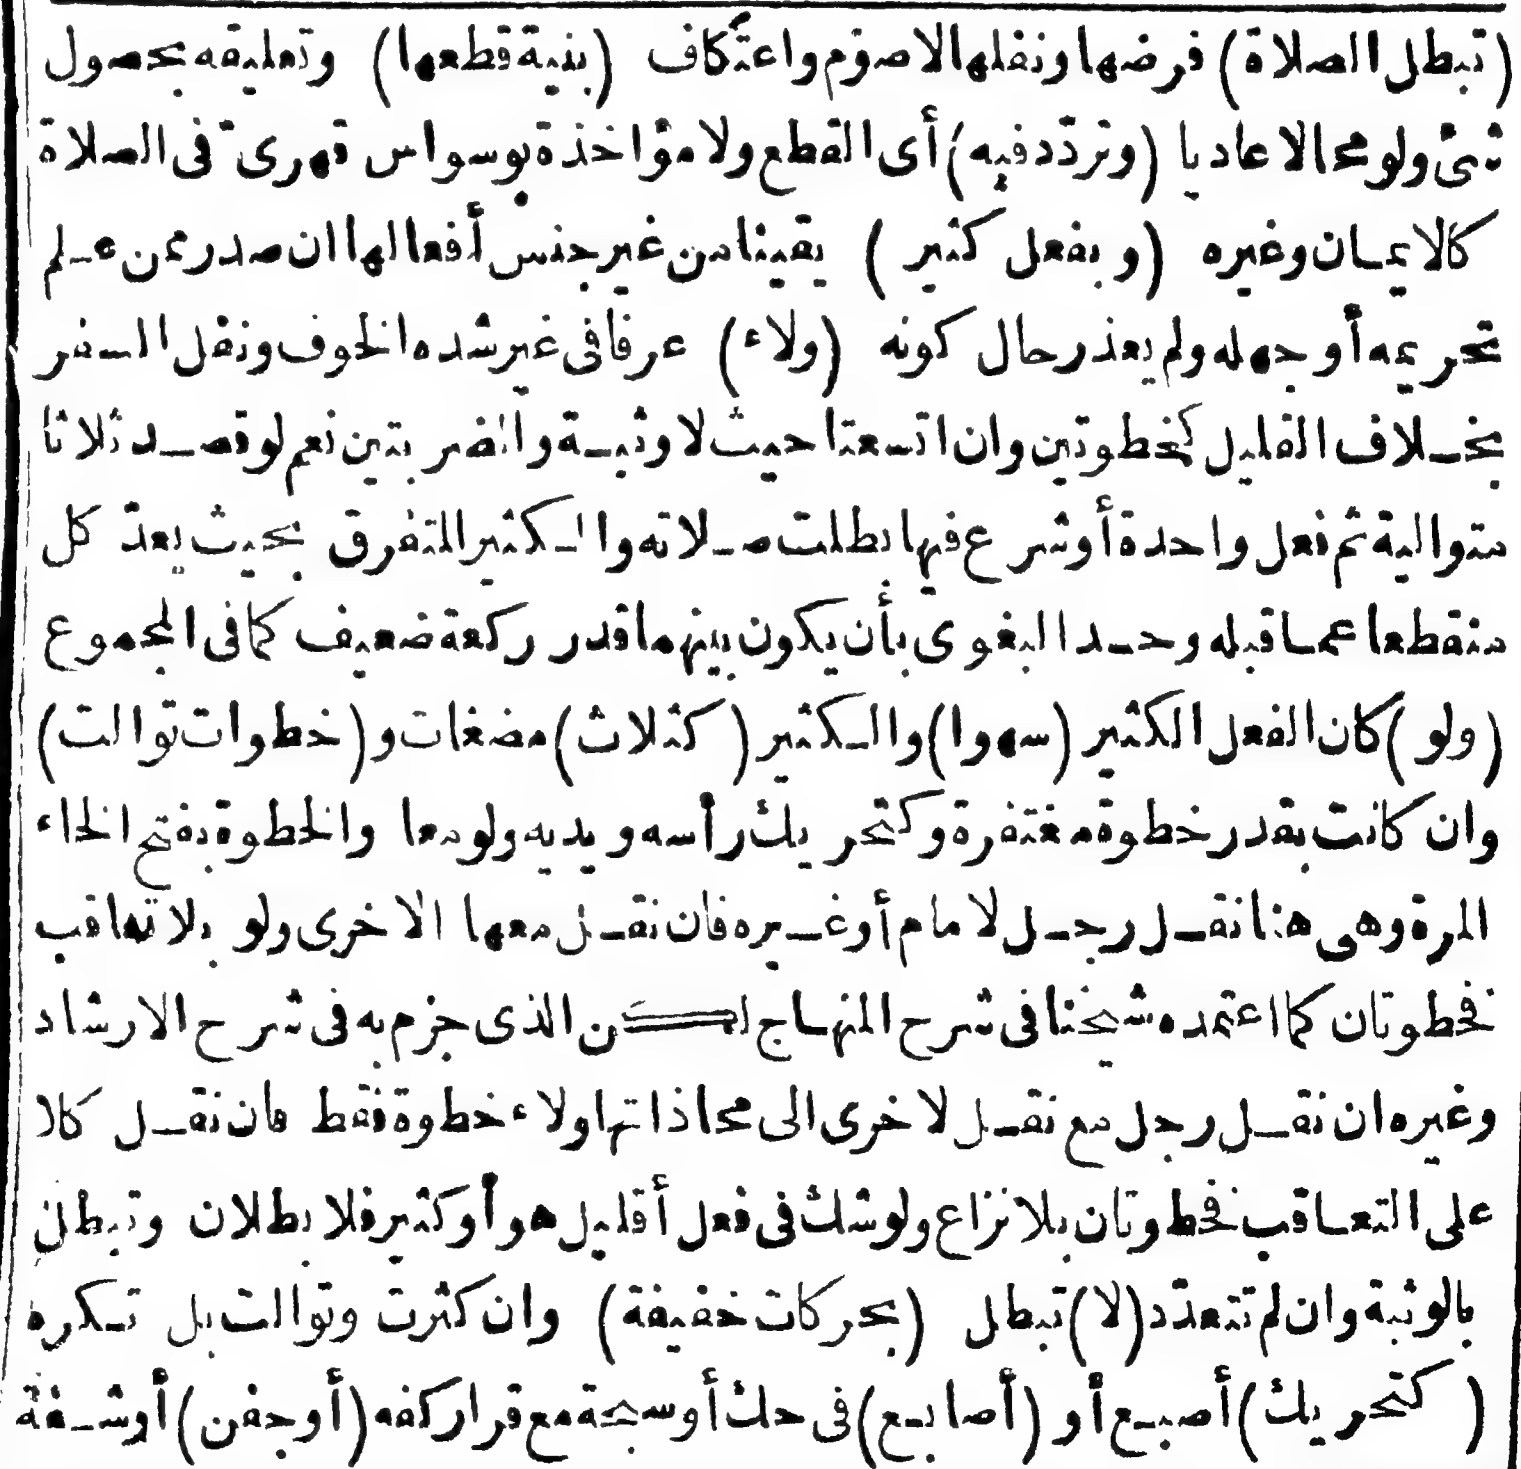 (تبطل الصلاة) فرضها ونفلها لا صوم واعتكاف (بنية قطعها) وتعليقه بحصول
شئ ولو محالا عاديا (وتردد فيه) أى القطع ولا مؤاخذة بوسواس قهرى فى الصلاة
كالايمان وغيره (وبفعل كثير) يقينا من غير جنس أفعالها ان صدر ممن علم
تحريمه أو جهله ولم يعذر حال كونه (ولاء) عرفا فى غير شده الخوف ونفل السفر
بخلاف القليل كخطوتين وان اتسعتا حيث لا وثبة والضربتين نعم لو قصد ثلاثا
متوالية ثم فعل واحدة أو شرع فيها بطلت صلاته والكثير المتفرق بحيث يعدّ كل
منقطعا عما قبله وحد البغوى بأن يكون بينهما قدر ركعة ضعيف كما فى المجموع
(ولو) كان الفعل الكثير (سهوا) والكثير (كثلاث) مضغات و (خطوات توالت)
وان كانت بقدر خطوة مغتفرة وكتحريك رأسه ويديه ولو معا والخطوة بفتح الخاء
المرة وهى هنا نقل رجل لامام أو غيره فان نقل معها الاخرى ولو بلا تعاقب
فخطوتان كما اعتمده شيخنا فى شرح المنهاج لكن الذى جزم به فى شرح الارشاد
وغيره ان نقل رجل مع نقل لاخرى الى محاذاتها ولاء خطوة فقط فان نقل كلا
على التعاقب فخطوتان بلا نزاع ولو شك فى فعل أقليل هو أو كثير فلا بطلان وتبطل
بالوثبة وان لم تتعدّد (لا) تبطل (بحركات خفيفة) وان كثرت وتوالت بل تكره
(كتحريك) أصبع أو (أصابع) فى حك أو سبحة مع قرار كفه (أو جفن) أو شفة